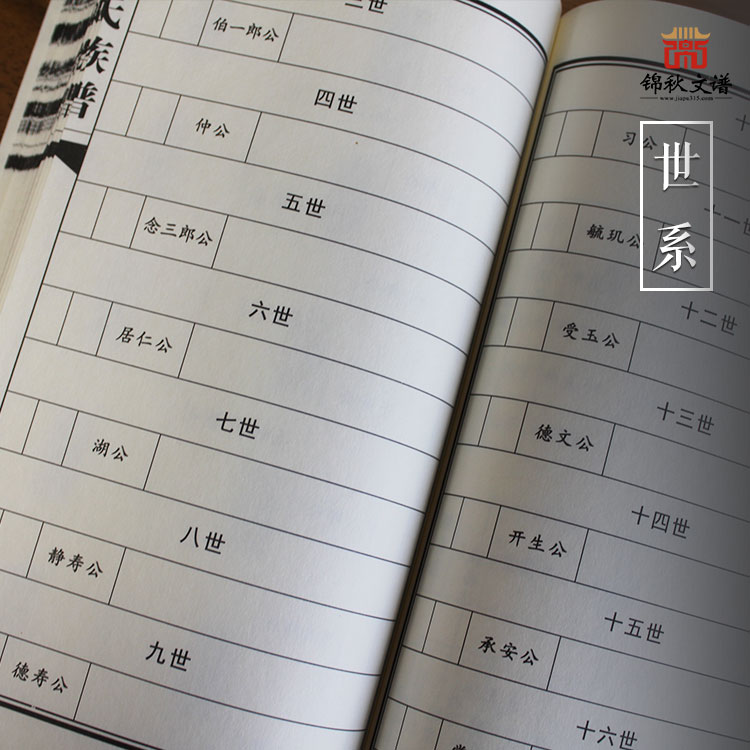 氏族谱
三世
伯一郎公
四世
仲公
五世
念三郎公
六世
居仁公
七世
湖公
八世
静寿公
九世
德寿公
十
习公
十一世
毓玑公
十二世
受玉公
十三世
德文公
十四世
开生公
十五世
承安公
十六世
锦秋文谱
www.jiapu315.com
世系